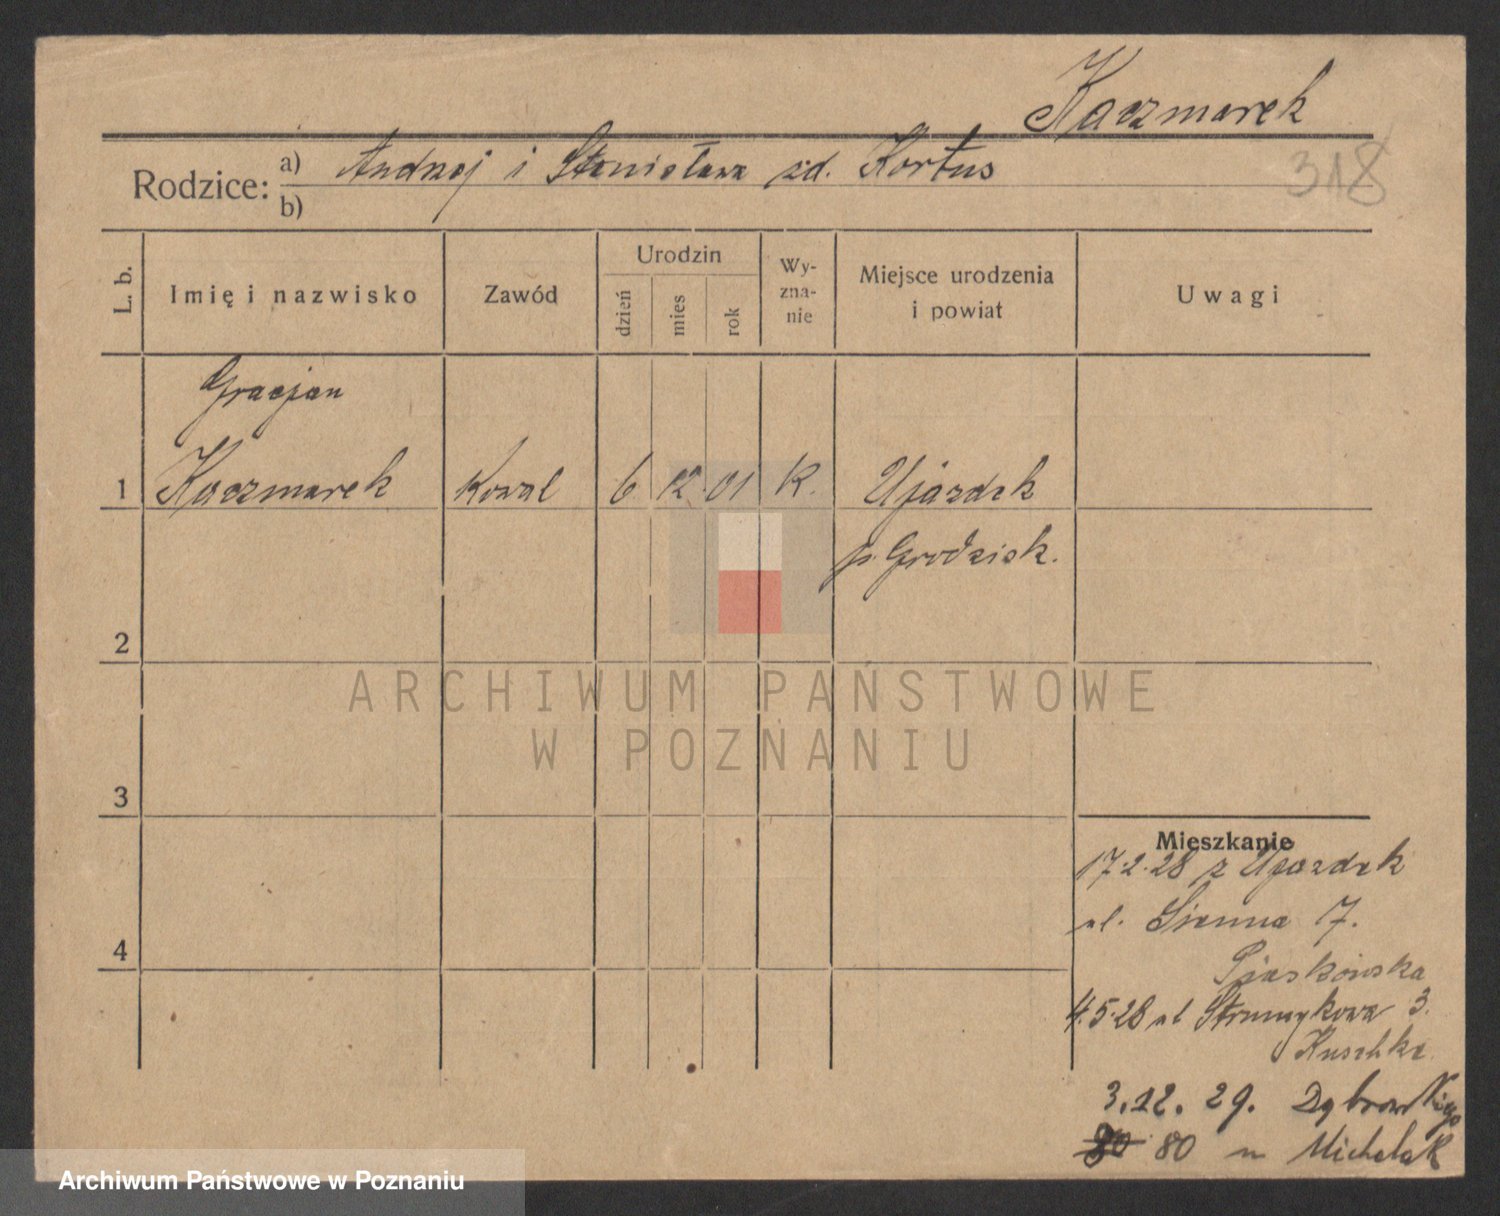 Kaczmarek
318
Rodzice: a) Andrzej i Stanisława zd. Kortus
b)
L. b. Imię i nazwisko Zawód Urodzin dzień mies rok Wy-zna-nie Miejsce urodzenia i powiat Uwagi
Gracjan
1 Kaczmarek Kowal 6 12 01 K. Ujazdek
p. Grodzisk.
2
3
4
Mieszkanie
17.2.28 z Ujazdek
ul. Sienna 7.
Piaskowska
4.5.28 ul Strumykowa 3.
Kuschke
3.12.29. Dąbrowskiego
80 80 u Michalak
ARCHIWUM PAŃSTWOWE
W POZNANIU
Archiwum Państwowe w Poznaniu